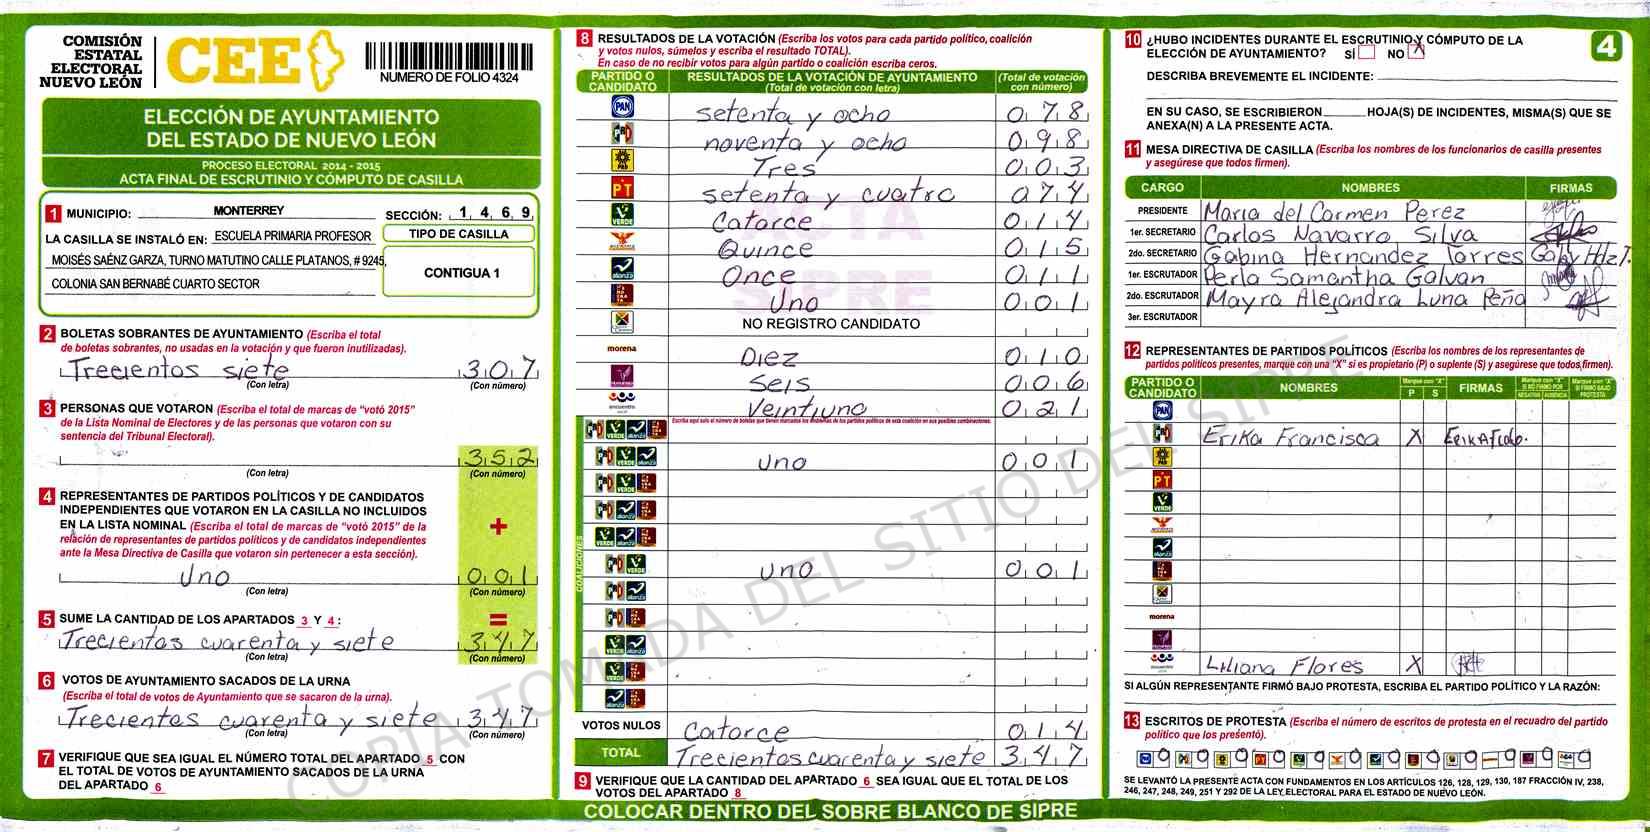 COMISIÓN
ESTATAL
ELECTORAL
NUEVO LEÓN
CEE
NUMERO DE FOLIO 4324
ELECCIÓN DE AYUNTAMIENTO
DEL ESTADO DE NUEVO LEÓN
PROCESO ELECTORAL 2014 - 2015
ACTA FINAL DE ESCRUTINIO Y CÓMPUTO DE CASILLA
1 MUNICIPIO: MONTERREY SECCIÓN: 1 4 6 9
LA CASILLA SE INSTALÓ EN: ESCUELA PRIMARIA PROFESOR
MOISÉS SAÉNZ GARZA, TURNO MATUTINO CALLE PLATANOS, # 9245,
COLONIA SAN BERNABÉ CUARTO SECTOR
TIPO DE CASILLA
CONTIGUA 1
2 BOLETAS SOBRANTES DE AYUNTAMIENTO (Escriba el total
de boletas sobrantes, no usadas en la votación y que fueron inutilizadas).
Trecientos siete 3 0 7
(Con letra) (Con número)
3 PERSONAS QUE VOTARON (Escriba el total de marcas de "votó 2015"
de la Lista Nominal de Electores y de las personas que votaron con su
sentencia del Tribunal Electoral).
3 5 2
(Con letra) (Con número)
4 REPRESENTANTES DE PARTIDOS POLÍTICOS Y DE CANDIDATOS
INDEPENDIENTES QUE VOTARON EN LA CASILLA NO INCLUIDOS
EN LA LISTA NOMINAL (Escriba el total de marcas de "votó 2015" de la
relación de representantes de partidos políticos y de candidatos independientes
ante la Mesa Directiva de Casilla que votaron sin pertenecer a esta sección).
+
Uno 0 0 1
(Con letra) (Con número)
5 SUME LA CANTIDAD DE LOS APARTADOS 3 Y 4: =
Trecientos cuarenta y siete 3 4 7
(Con letra) (Con número)
6 VOTOS DE AYUNTAMIENTO SACADOS DE LA URNA
(Escriba el total de votos de Ayuntamiento que se sacaron de la urna).
Trecientos cuarenta y siete 3 4 7
(Con letra) (Con número)
7 VERIFIQUE QUE SEA IGUAL EL NÚMERO TOTAL DEL APARTADO 5 CON
EL TOTAL DE VOTOS DE AYUNTAMIENTO SACADOS DE LA URNA
DEL APARTADO 6
8 RESULTADOS DE LA VOTACIÓN (Escriba los votos para cada partido político, coalición
y votos nulos, súmelos y escriba el resultado TOTAL).
En caso de no recibir votos para algún partido o coalición escriba ceros.
PARTIDO O CANDIDATO
RESULTADOS DE LA VOTACIÓN DE AYUNTAMIENTO
(Total de votación con letra)
(Total de votación con número)
PAN setenta y ocho 0 7 8
PRD noventa y ocho 0 9 8
PRD Tres 0 0 3
PT setenta y cuatro 0 7 4
VERDE Catorce 0 1 4
Quince 0 1 5
alianza Once 0 1 1
Uno 0 0 1
NO REGISTRO CANDIDATO
morena Diez 0 1 0
Seis 0 0 6
encuentro Veintiuno 0 2 1
Escriba aquí solo el número de boletas que tienen marcados los emblemas de los partidos políticos de esta coalición en sus posibles combinaciones.
COALICIONES
uno 0 0 1
uno 0 0 1
VOTOS NULOS Catorce 0 1 4
TOTAL Trecientos cuarenta y siete 3 4 7
9 VERIFIQUE QUE LA CANTIDAD DEL APARTADO 6 SEA IGUAL QUE EL TOTAL DE LOS
VOTOS DEL APARTADO 8
COLOCAR DENTRO DEL SOBRE BLANCO DE SIPRE
ACTA
SIPRE
COPIA TOMADA DEL SITIO DEL SIPRE
10 ¿HUBO INCIDENTES DURANTE EL ESCRUTINIO Y CÓMPUTO DE LA
ELECCIÓN DE AYUNTAMIENTO? SÍ NO X
4
DESCRIBA BREVEMENTE EL INCIDENTE:
EN SU CASO, SE ESCRIBIERON HOJA(S) DE INCIDENTES, MISMA(S) QUE SE
ANEXA(N) A LA PRESENTE ACTA.
11 MESA DIRECTIVA DE CASILLA (Escriba los nombres de los funcionarios de casilla presentes
y asegúrese que todos firmen).
CARGO NOMBRES FIRMAS
PRESIDENTE Maria del Carmen Perez
1er. SECRETARIO Carlos Navarro Silva
2do. SECRETARIO Gabina Hernandez Torres Gaby Hdz T.
1er. ESCRUTADOR Perla Samantha Galvan
2do. ESCRUTADOR Mayra Alejandra Luna Peña
3er. ESCRUTADOR
12 REPRESENTANTES DE PARTIDOS POLÍTICOS (Escriba los nombres de los representantes de
partidos políticos presentes, marque con una "X" si es propietario (P) o suplente (S) y asegúrese que todos firmen).
PARTIDO O CANDIDATO
NOMBRES
Marque con "X"
P S
FIRMAS
Marque con "X" SI NO FIRMÓ POR
NEGATIVA AUSENCIA
Marque con "X" SI FIRMÓ BAJO PROTESTA
PAN
Erika Francisca X
PRD
PT
VERDE
alianza
morena
encuentro Liliana Flores X
SI ALGÚN REPRESENTANTE FIRMÓ BAJO PROTESTA, ESCRIBA EL PARTIDO POLÍTICO Y LA RAZÓN:
13 ESCRITOS DE PROTESTA (Escriba el número de escritos de protesta en el recuadro del partido
político que los presentó).
0 0 0 0 0 0 0 0 0 0 0 0
SE LEVANTÓ LA PRESENTE ACTA CON FUNDAMENTOS EN LOS ARTÍCULOS 126, 128, 129, 130, 187 FRACCIÓN IV, 238,
246, 247, 248, 249, 251 Y 292 DE LA LEY ELECTORAL PARA EL ESTADO DE NUEVO LEÓN.